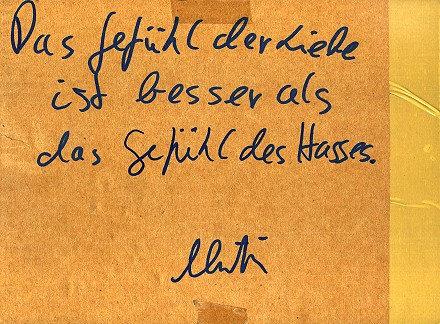 Das Gefühl der Liebe
ist besser als
das Gefühl des Hasses.